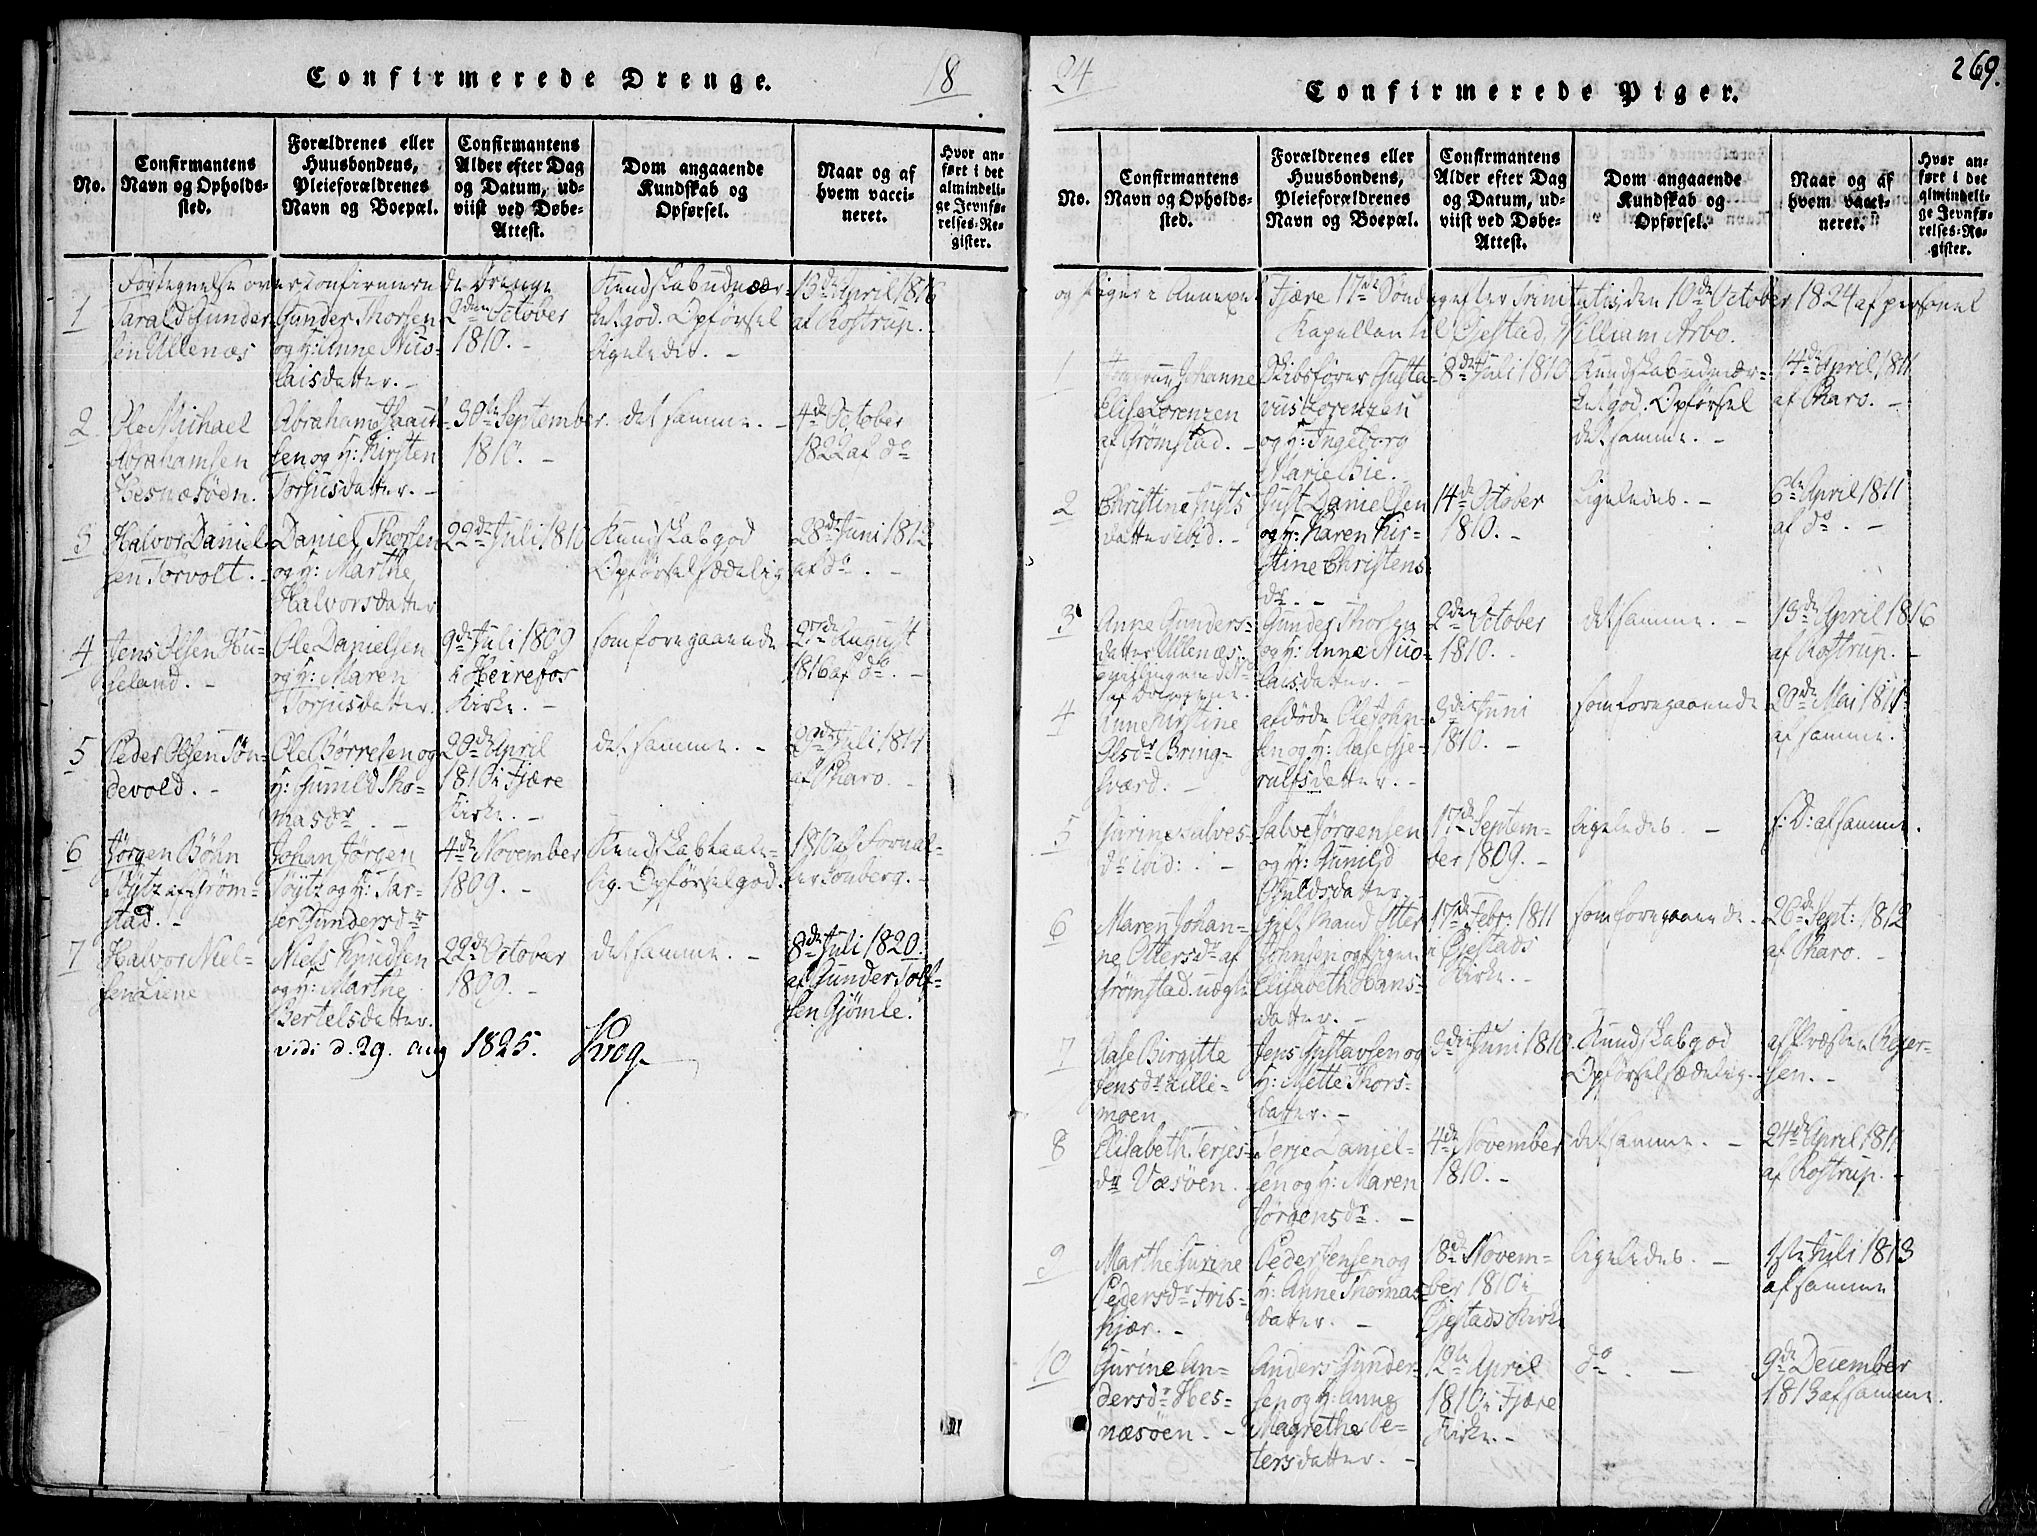 Confirmerede Drenge.
18
No.
Confirmantens
Navn og Opholds-
sted.
Forældrenes eller
Huusbondens,
Pleieforældrenes
Navn og Boepæl.
Confirmantens
Alder efter Dag
og Datum, ud-
viist ved Døbe-
Attest.
Dom angaaende
Kundskab og
Opførsel.
Naar og af
hvem vacci-
neret.
Hvor an-
ført i det
almindeli-
ge Jevnfø-
relses-Re-
gister.
Fortegnelse over confirmerede Drenge
1
Tarald Gunder-
sen Ullenæs
Gunder Thorsen
og H: Anne Nico-
laisdatter. -
2den October
1810. -
Kundskab udmær-
ket god. Opførsel
ligeledes. -
13de April 1816
af Rostrup. -
2
Ole Michael
Abrahamsen
Hesnæsöen.
Abraham Haavi-
sen og H: Kirsten
Torjusdatter. -
30te September
1810. -
det samme. -
4de October
1822 af do
3
Halvor Daniel-
sen Torvolt. -
Daniel Thorsen
og H: Marthe
Halvorsdatter
22de Juli 1810
Kundskab god
Opførsel sædelig
28de Juni 1812
af do. -
4
Jens Olsen Hu-
jeland. -
Ole Danielsen
og H: Maren
Torjusdatter.
9de Juli 1809
i Heirefos
Kirke. -
som foregaaende
27de August
1816 af do. -
5
Peder Olsen Søn-
devold. -
Ole Børresen og
H: Gunild Tho-
masdr. -
20de April
1810 i Fjære
Kirke. -
det samme. -
29de Juli 1811
af Pharo. -
6
Jørgen Böhn
Töytz af Grøm-
stad. -
Johan Jørgen
Töytz og H: Tar-
jer Gundersdr
4de November
1809. -
Kundskab taale-
lig. Opførsel god.
1810 af Fornal-
ler Tonberg. -
7
Halvor Niel-
sen Liene
Niels Knudsen
og H: Marthe
Bertelsdatter.
22de October
1809. -
det samme. -
8de Juli 1820.
af Gunder Tolf-
sen Gjömle.
vidi d. 29. Aug 1825. Krog
24
269.
Confirmerede Piger.
No.
Confirmantens
Navn og Opholds-
sted.
Forældrenes eller
Huusbondens,
Pleieforældrenes
Navn og Boepæl.
Confirmantens
Alder efter Dag
og Datum, ud-
viist ved Døbe-
Attest.
Dom angaaende
Kundskab og
Opførsel.
Naar og af
hvem vacci-
neret.
Hvor an-
ført i det
almindeli-
ge Jevnfø-
relses-Re-
gister.
og Piger i Annexet Fjære 17de Söndag efter Trinitatis, den 10de October 1824 af personel
Kapellan til Öjestad, William Arbo.
1
Johanne
Elise Lorenzen
af Grømstad. -
Skibsfører Gusta-
vus Lorenzen
og H: Ingeborg
Marie Bie.
8de Juli 1810
Kundskab udmær-
ket god. Opførsel
det samme. -
14de April 1811
af Pharo. -
2
Christine Justs
datter ibid. -
Just Danielsen
og H: Karen Kir-
stine Christens
dr. -
14de October
1810. -
Ligeledes. -
6te April 1811
af do. -
3
Anne Gunders-
datter Ullenæs
tvilling med No
1 af Drengene.
Gunder Thorsen
og H: Anne Nico-
laisdatter. -
2den October
1810. -
det samme. -
13de April 1816
af Rostrup. -
4
Anne Kirstine
Olsdr Bring-
sværd. -
afdöde Ole John-
sen og H: Aase Gje-
rulfsdatter. -
3die Juni
1810. -
som foregaaende
20de Mai 1811
af samme.
5
Gurine Salves-
dr ibid: -
Salve Jørgensen
og H: Gunild
Osuldsdatter -
17de Septem-
ber 1809. -
ligeledes. -
s: D: af samme.
6
Maren Johan-
ne Ottersdr af
Grømstad. uægte
Otter
Johnsen og Pigen
Elisabeth Hans-
datter. -
17de Febr: 1811
i Öjestads
Kirke. -
som foregaaende. -
26de Sept: 1812
af Pharo. -
7
Aase Birgitte
Jensdr Lille-
moen
Jens Gustavsen og
H: Mette Thors-
datter. -
3die Juni 1810.
Kundskab god
Opførsel sædelig. -
af Præsten Reier-
sen. -
8
Elisabeth Terjes-
dr Væsöen.
Terje Daniel-
sen og H: Maren
Jørgensdr. -
4de November
1810. -
det samme. -
24de April 1811
af Rostrup. -
9
Marthe Gurine
Pedersdr Fris-
kjær. -
Peder Jensen og
H: Anne Thomas-
datter. -
18de Novem-
ber 1810 i
Öjestads Kirke
ligeledes. -
1ste Juli 1813
af samme
10
Gurine An-
dersdr Hes-
næsöen. -
Anders Gunder-
sen og H: Anne
Magrethe Pe-
tersdatter. -
12te April
1810 i Fjære
Kirke. -
do -
9de December
1813 af samme.